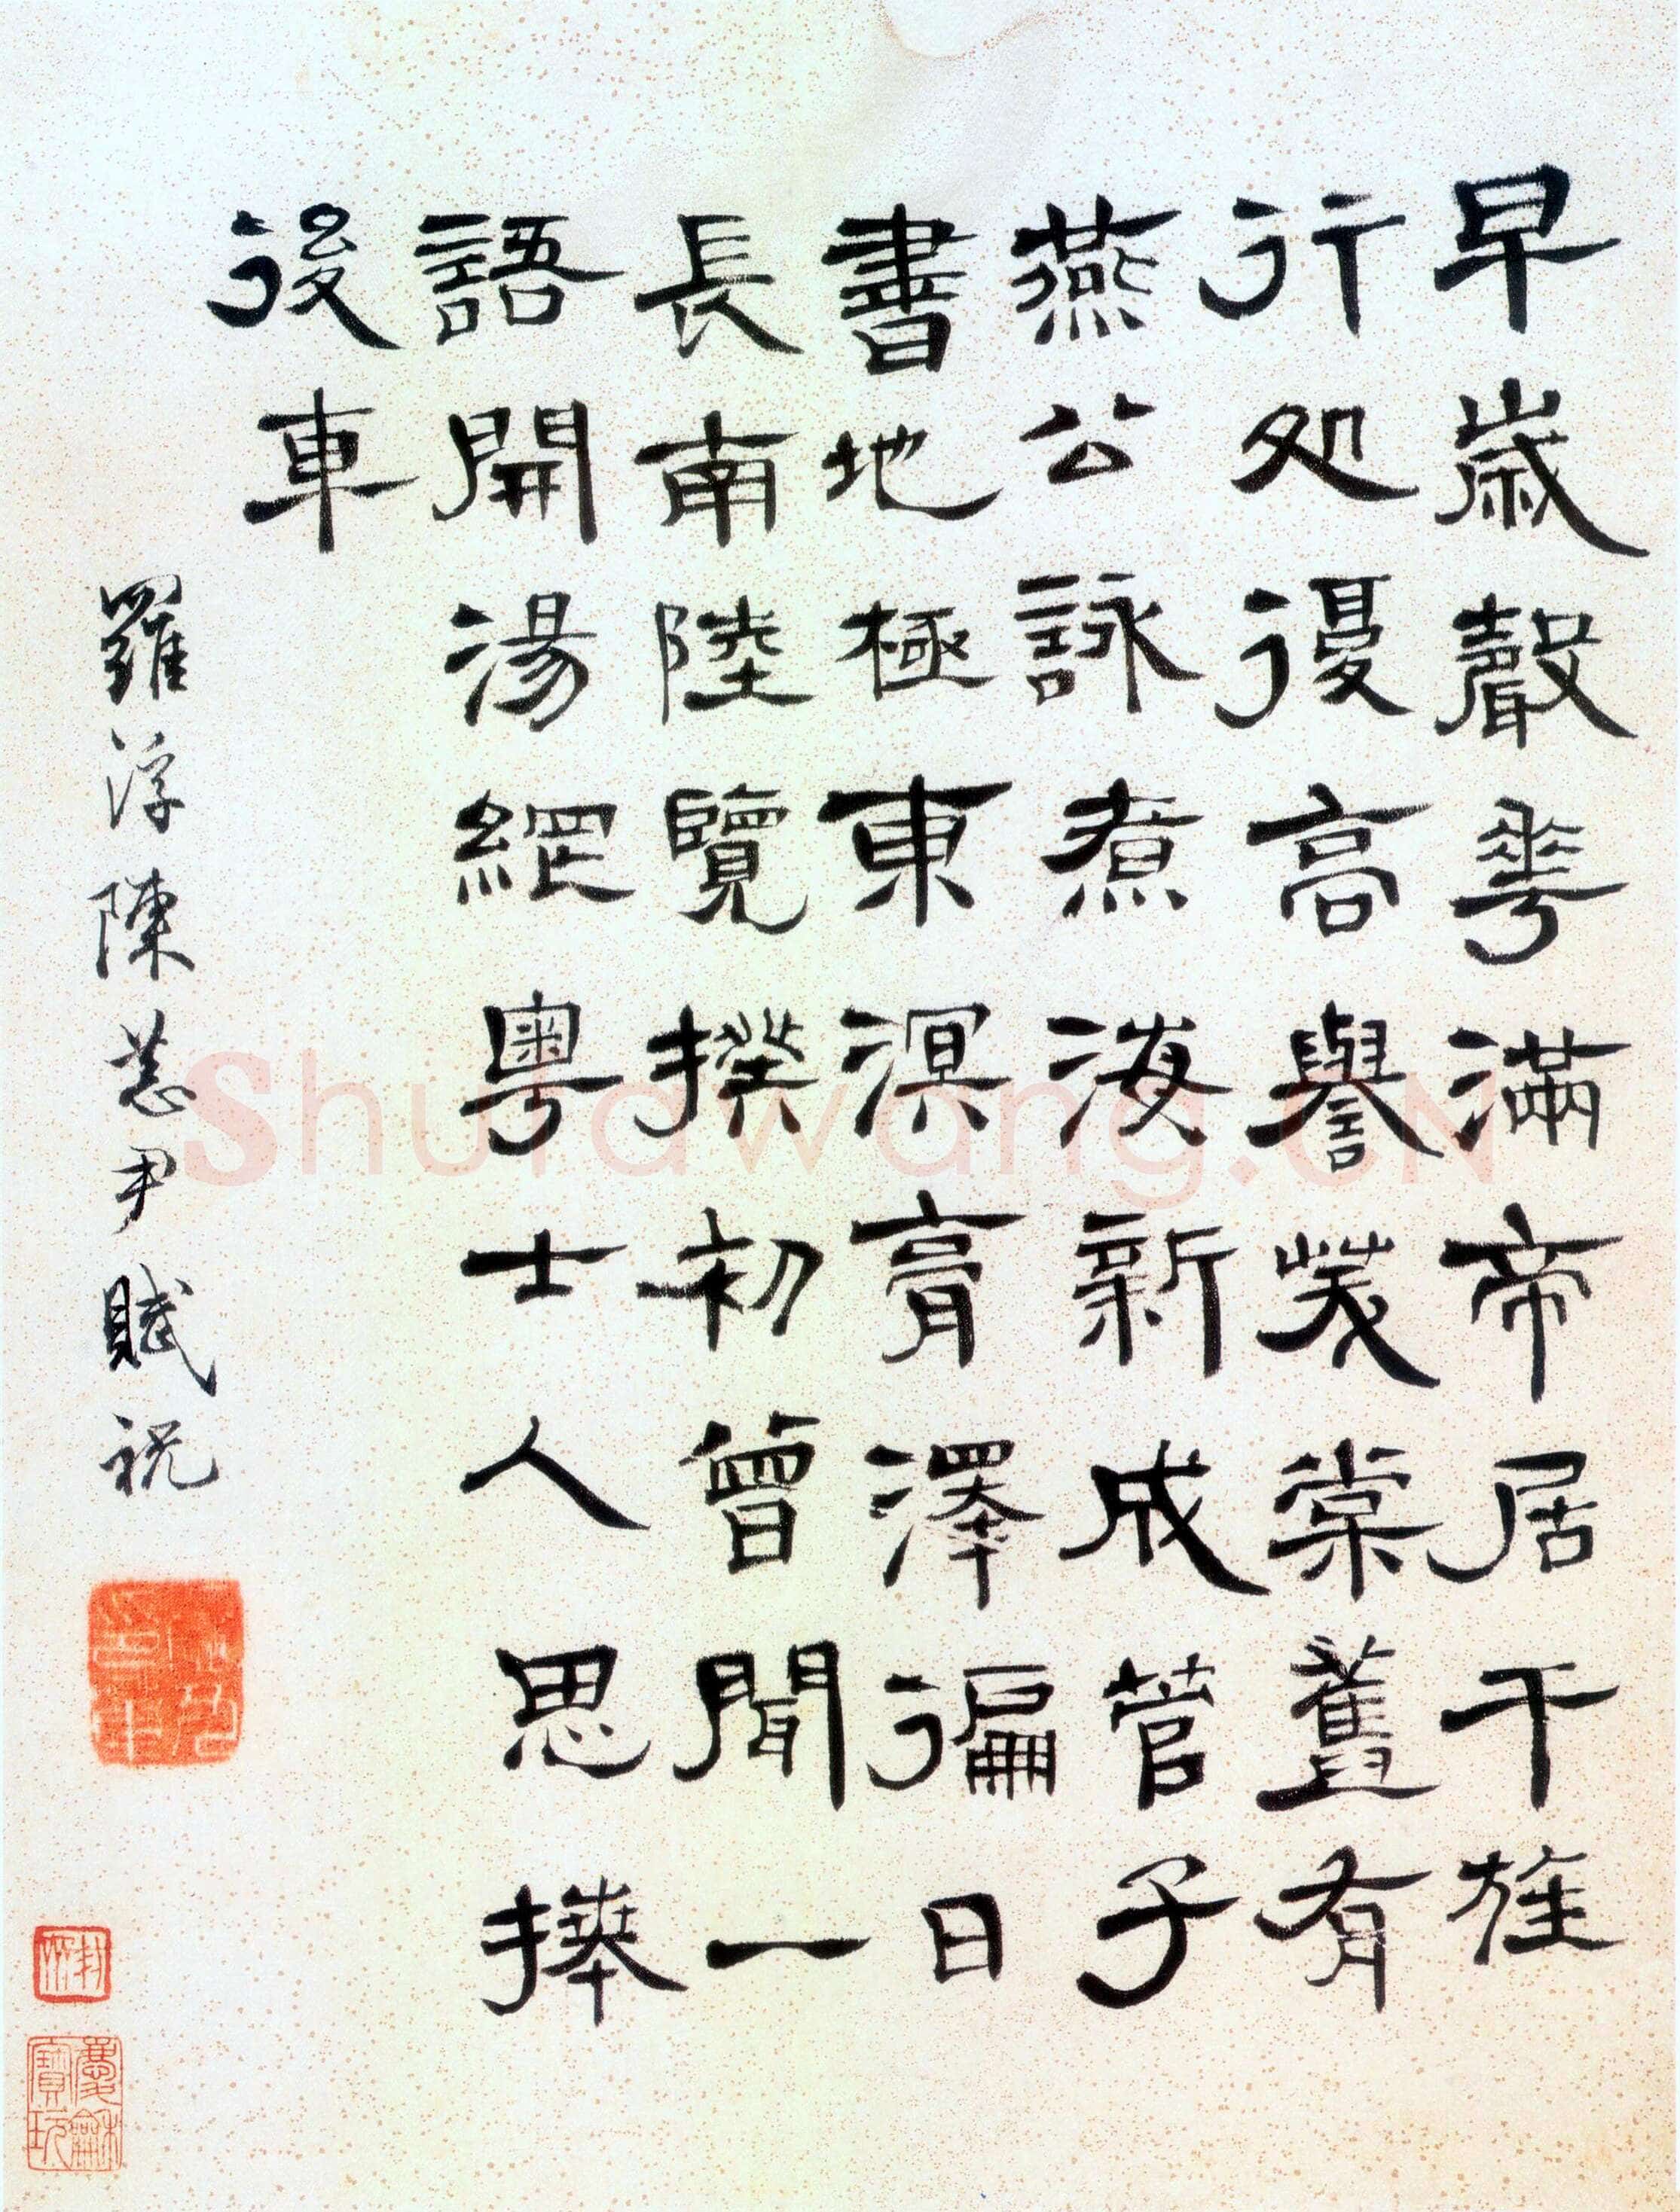 早歲聲華滿帝居干旌
行処優高譽茂棠舊有
燕公詠煮海新成管子
書地極東溟膏澤徧日
長南陸覽揆初曾聞一
語開湯網粵士人思捧
後車
羅浮陳恭尹賦祝
Shufawang.CN